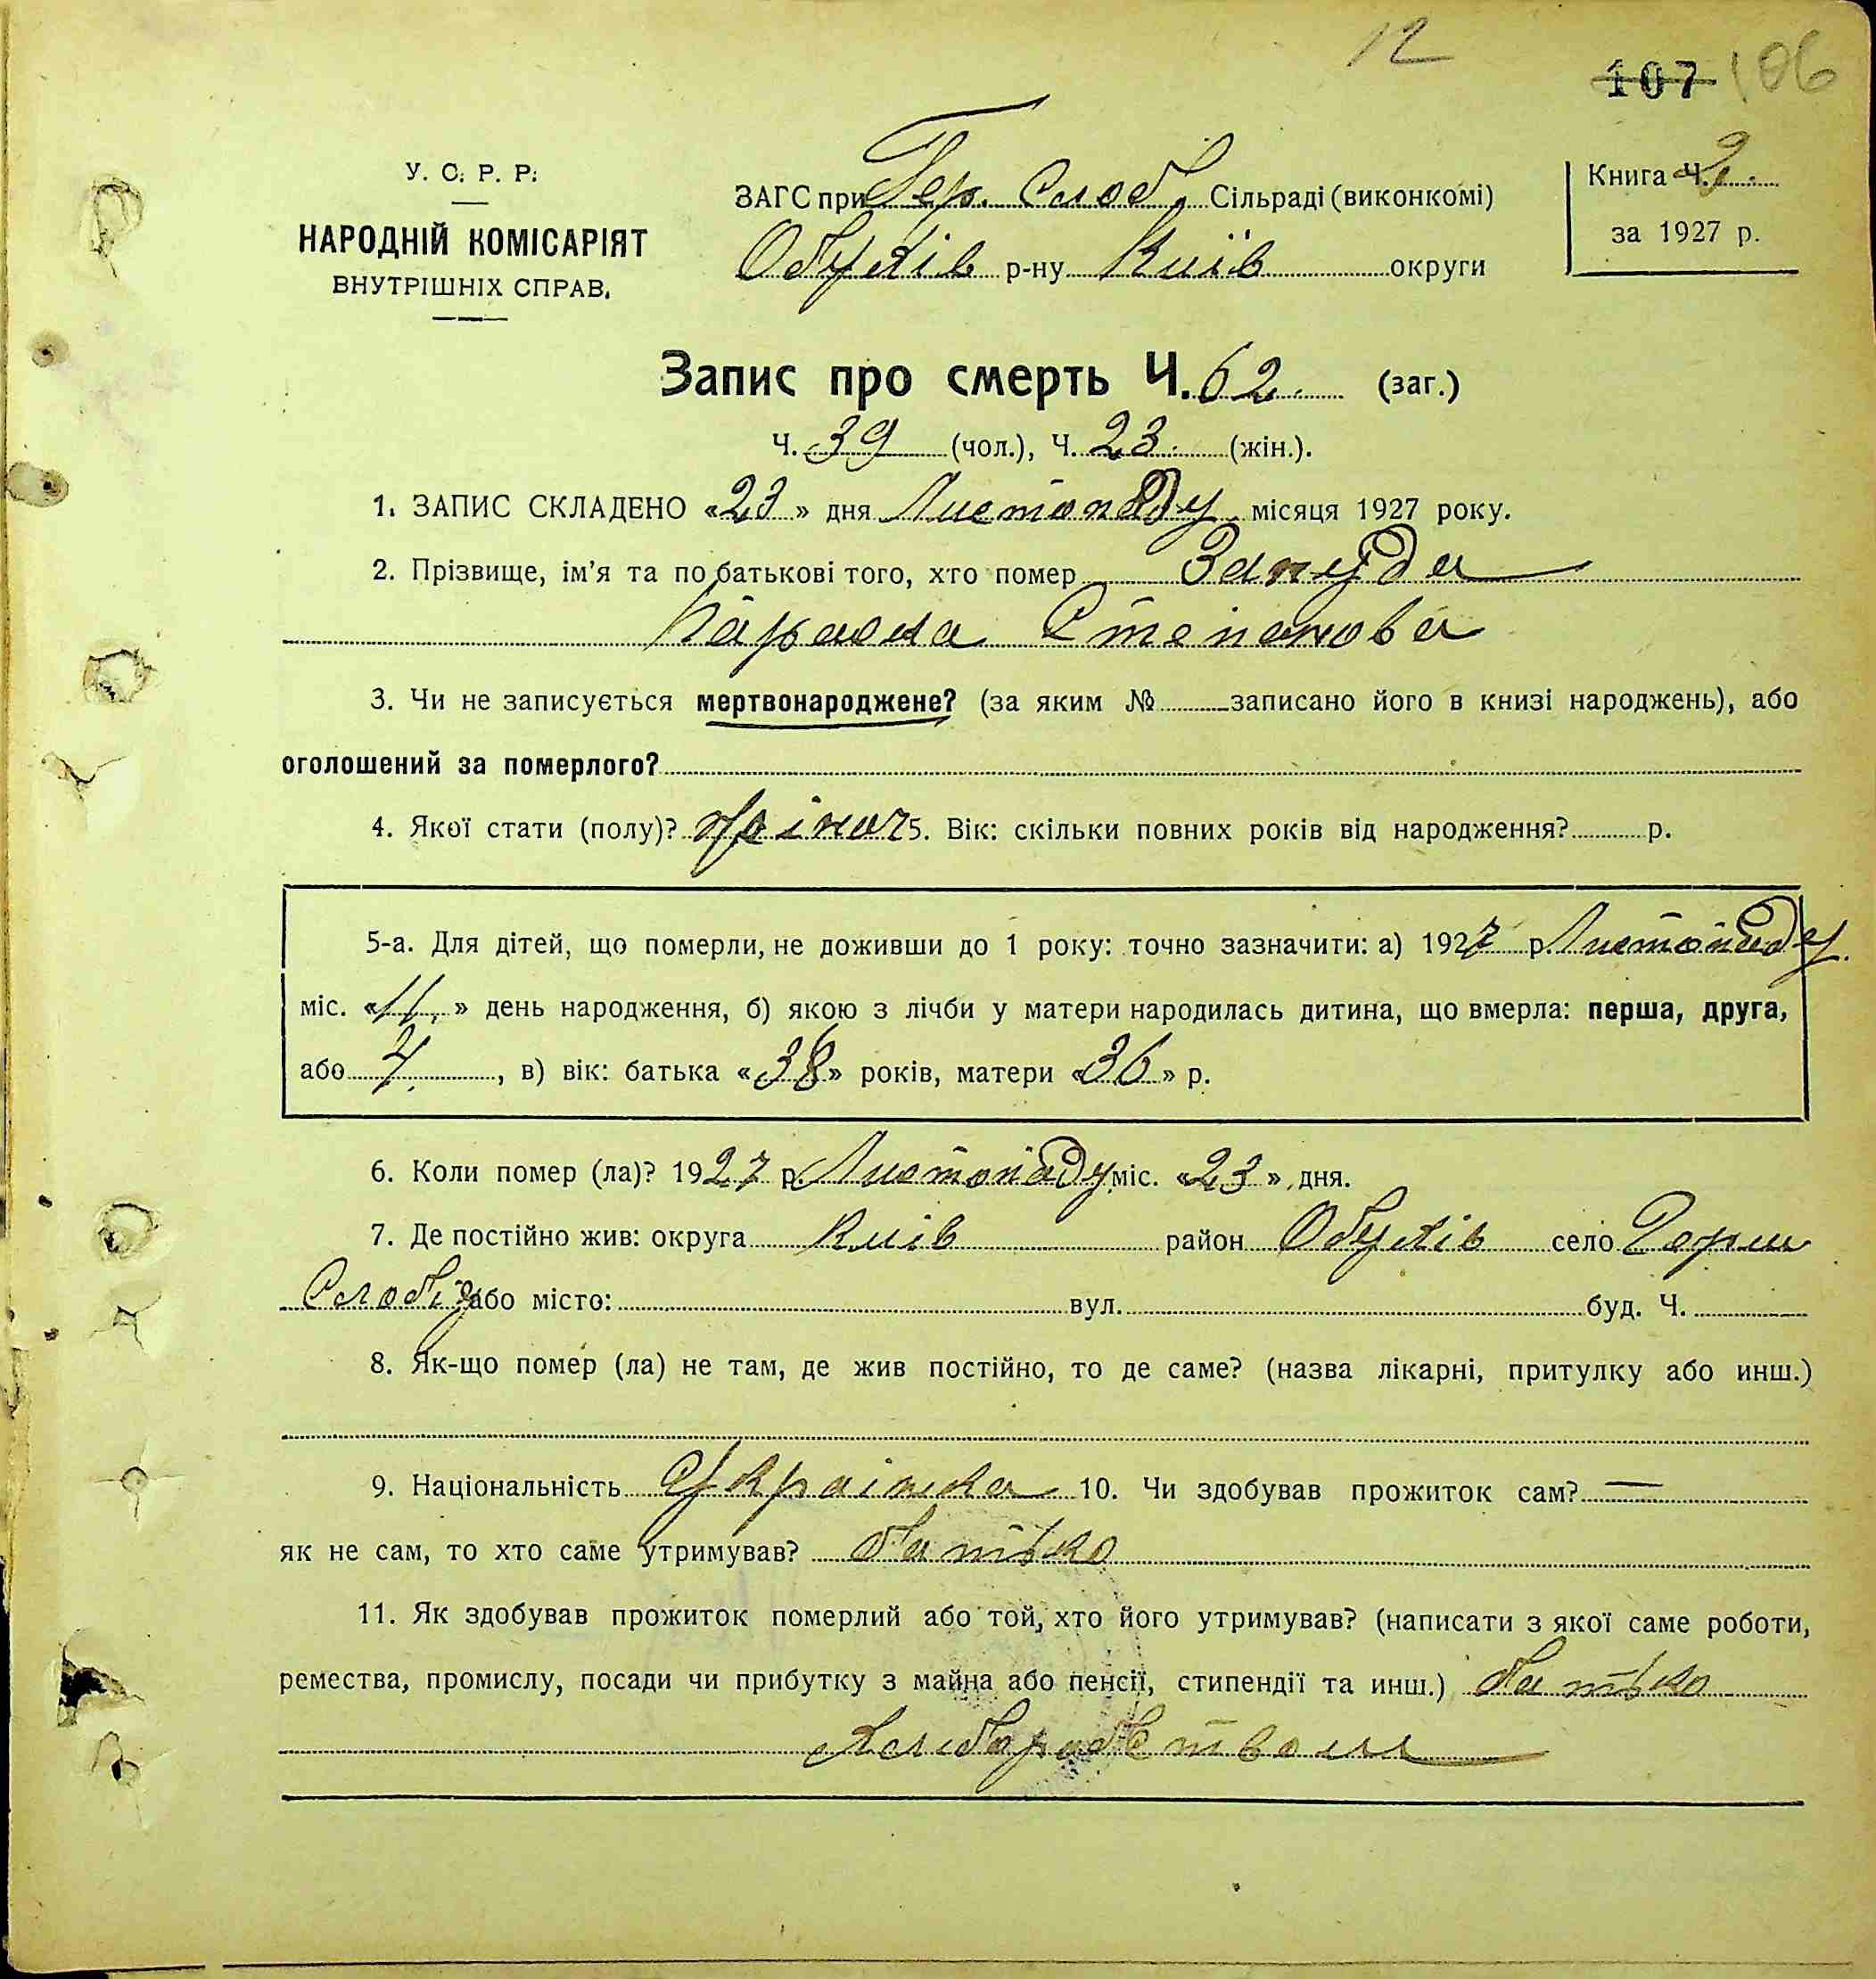 12
107 106
У. С. Р. Р.
НАРОДНІЙ КОМІСАРІЯТ
ВНУТРІШНІХ СПРАВ.
ЗАГС при Гер. Слоб. Сільраді (виконкомі)
Обухів р-ну Київ округи
Книга Ч. 2.
за 1927 р.
Запис про смерть Ч. 62. (заг.)
Ч. 39 (чол.), Ч. 23. (жін.).
1. ЗАПИС СКЛАДЕНО «23» дня Листопаду місяця 1927 року.
2. Прізвище, ім’я та по батькові того, хто помер Запуда
Параска Степанова
3. Чи не записується мертвонароджене? (за яким № записано його в книзі народжень), або
оголошений за померлого?
4. Якої стати (полу)? жіноч 5. Вік: скільки повних років від народження? р.
5-а. Для дітей, що померли, не доживши до 1 року: точно зазначити: а) 1927 р. Листопаду
міс. «11.» день народження, б) якою з лічби у матери народилась дитина, що вмерла: перша, друга,
або , в) вік: батька «38» років, матери «36» р.
6. Коли помер (ла)? 1927 р. Листопаду міс. «23» дня.
7. Де постійно жив: округа Київ район Обухів село
Слобід або місто: вул. буд. Ч.
8. Як-що помер (ла) не там, де жив постійно, то де саме? (назва лікарні, притулку або инш.)
9. Національність Українка 10. Чи здобував прожиток сам? —
як не сам, то хто саме утримував? батько
11. Як здобував прожиток померлий або той, хто його утримував? (написати з якої саме роботи,
ремества, промислу, посади чи прибутку з майна або пенсії, стипендії та инш.) батько
хліборобством